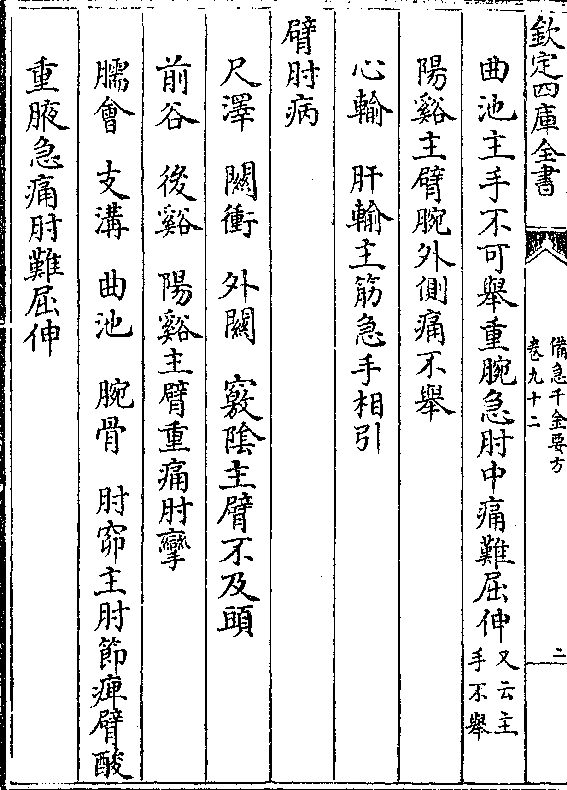 欽定四庫全書
備急千金要方
卷九十二
二
曲池主手不可舉重腕急肘中痛難屈伸又云主手不舉
陽谿主臂腕外側痛不舉
心輸 肝輸主筋急手相引
臂肘病
尺澤 關衝 外關 竅陰主臂不及頭
前谷 後谿 陽谿主臂重痛肘攣
臑會 支溝 曲池 腕骨 肘窌主肘節痺臂酸
重腋急痛肘難屈伸